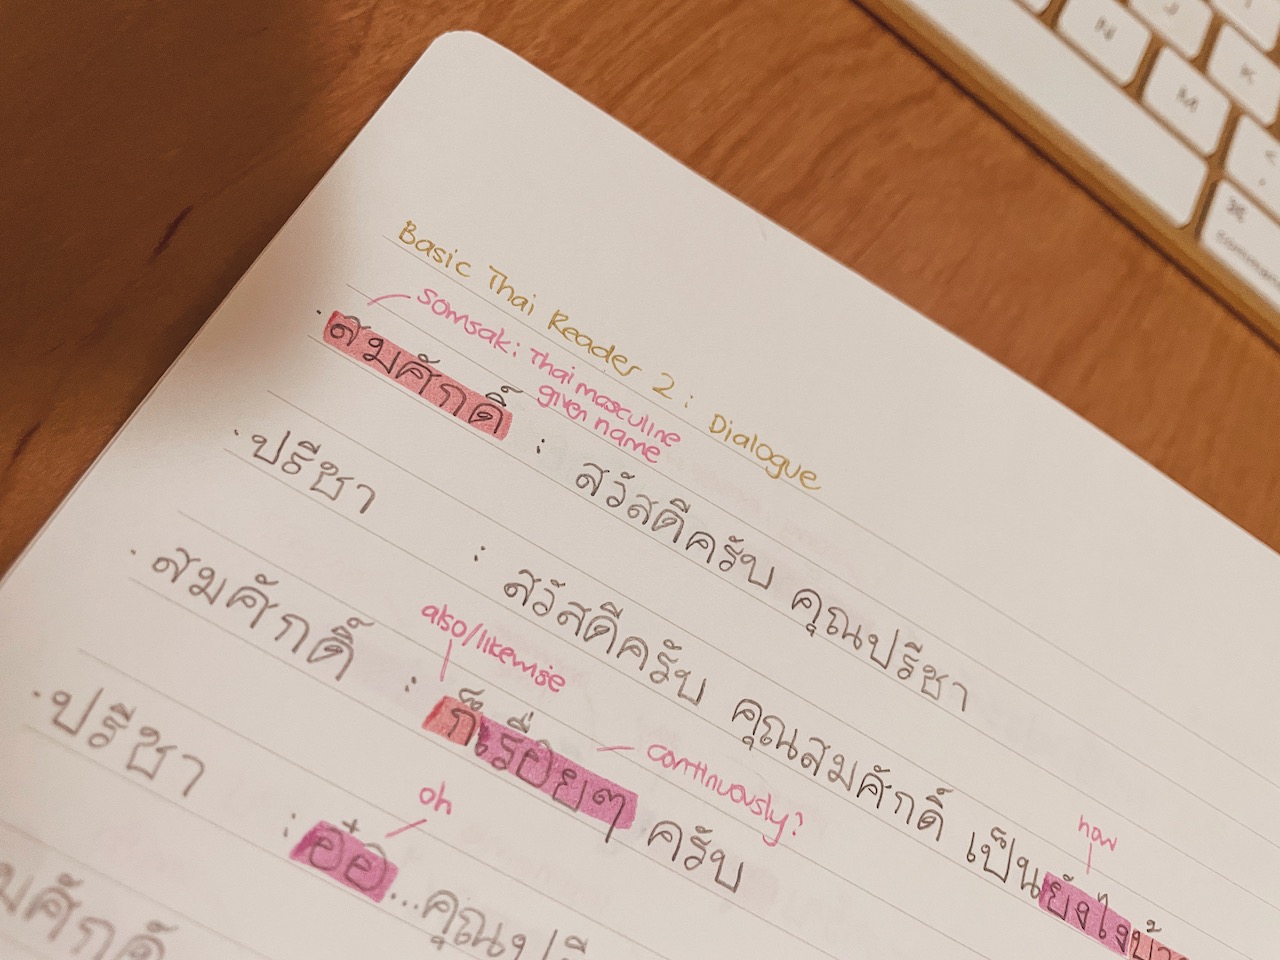 Basic Thai Reader 2 : Dialogue
somsak : Thai masculine
given name
· สมศักดิ์ : สวัสดีครับ คุณปรีชา
· ปรีชา : สวัสดีครับ คุณสมศักดิ์ เป็นยังไงบ้าง
also/likewise
now
· สมศักดิ์ : ก็เรื่อยๆ ครับ
continuously?
oh
· ปรีชา : อ๋อ...คุณปรี
มศักดิ์
N
J
M
K
<
,
⌘
command